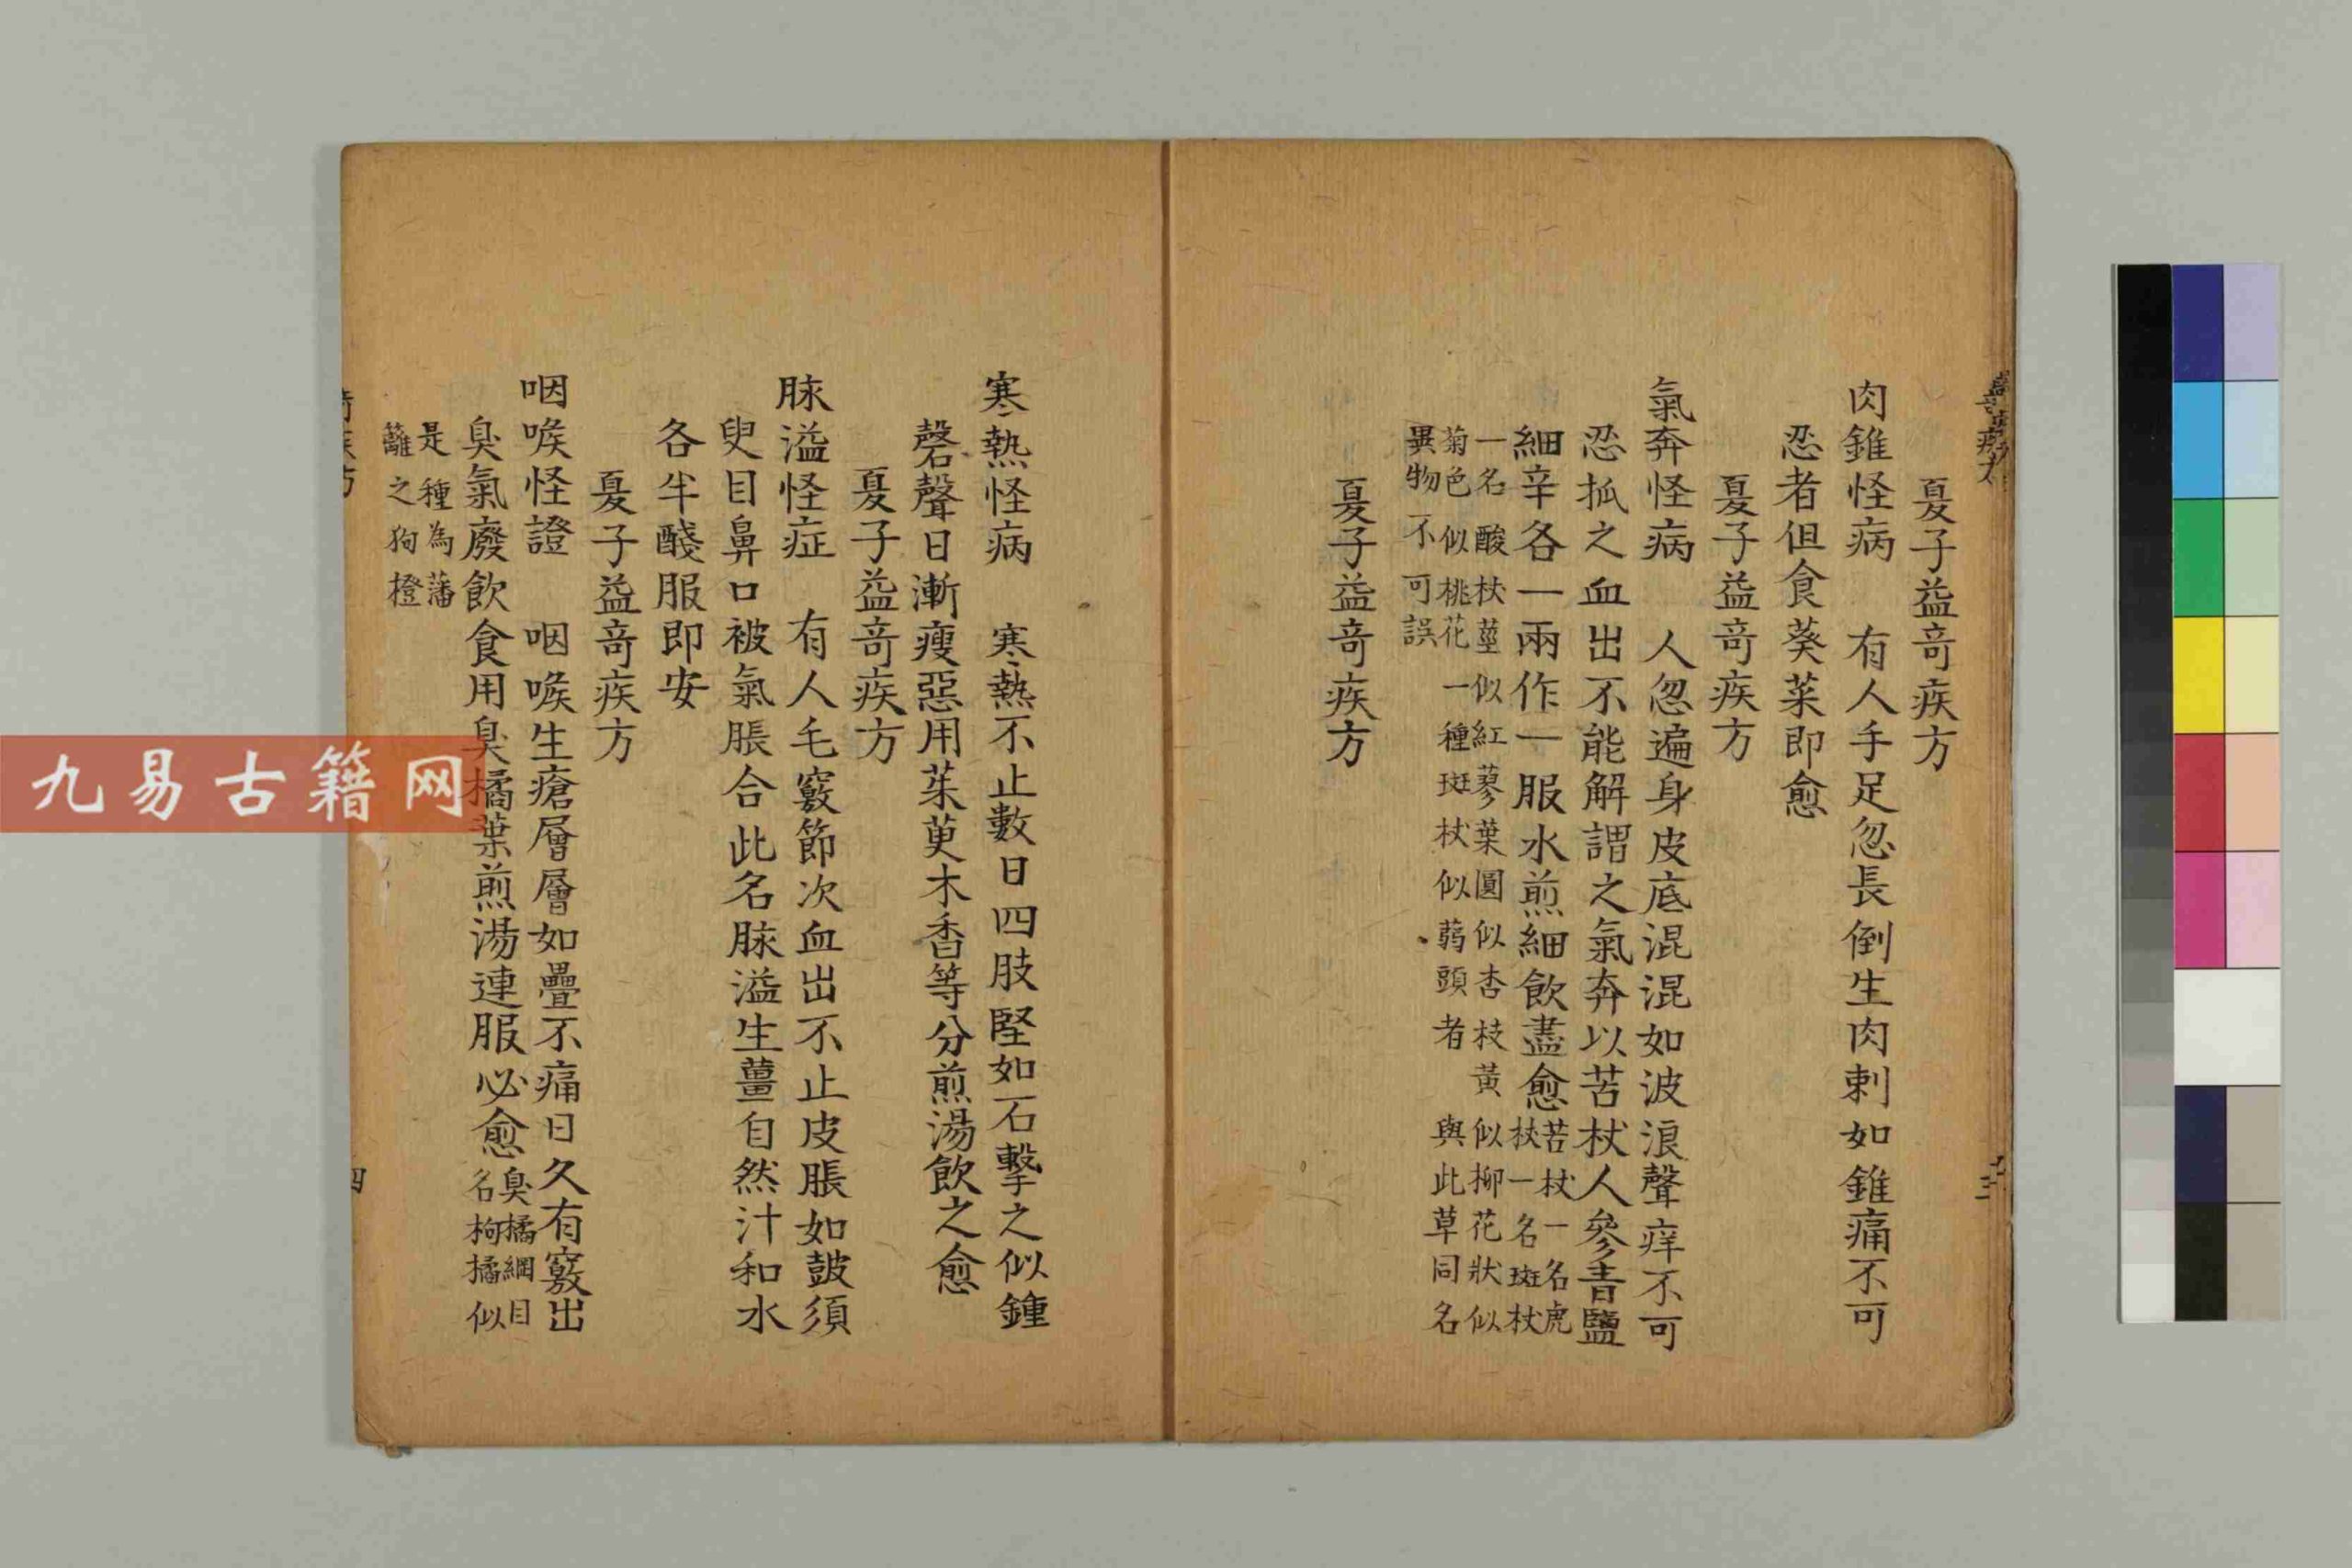 夏子益奇疾方
肉錐怪病　有人手足忽長倒生肉刺如錐痛不可
忍者但食葵菜即愈
夏子益奇疾方
氣奔怪病　人忽遍身皮底混混如波浪聲痒不可
忍抓之血出不能解謂之氣奔以苦杖人參青鹽
細辛各一兩作一服水煎細飲盡愈苦杖一名虎
杖一名斑杖
一名酸杖莖似紅蓼葉圓似杏枝黃似柳花狀似
菊色似桃花一種斑杖似蒻頭者與此草同名
異物不可誤
夏子益奇疾方
寒熱怪病　寒熱不止數日四肢堅如石擊之似鍾
磬聲日漸瘦惡用茱萸木香等分煎湯飲之愈
夏子益奇疾方
脉溢怪症　有人毛竅節次血出不止皮脹如皷須
臾目鼻口被氣脹合此名脉溢生薑自然汁和水
各半醆服即安
夏子益奇疾方
咽喉怪證　咽喉生瘡層層如疊不痛日久有竅出
臭氣廢飲食用臭橘葉煎湯連服必愈臭橘綱目
名枸橘似
是種為藩
籬之狗橙
四
九易古籍网